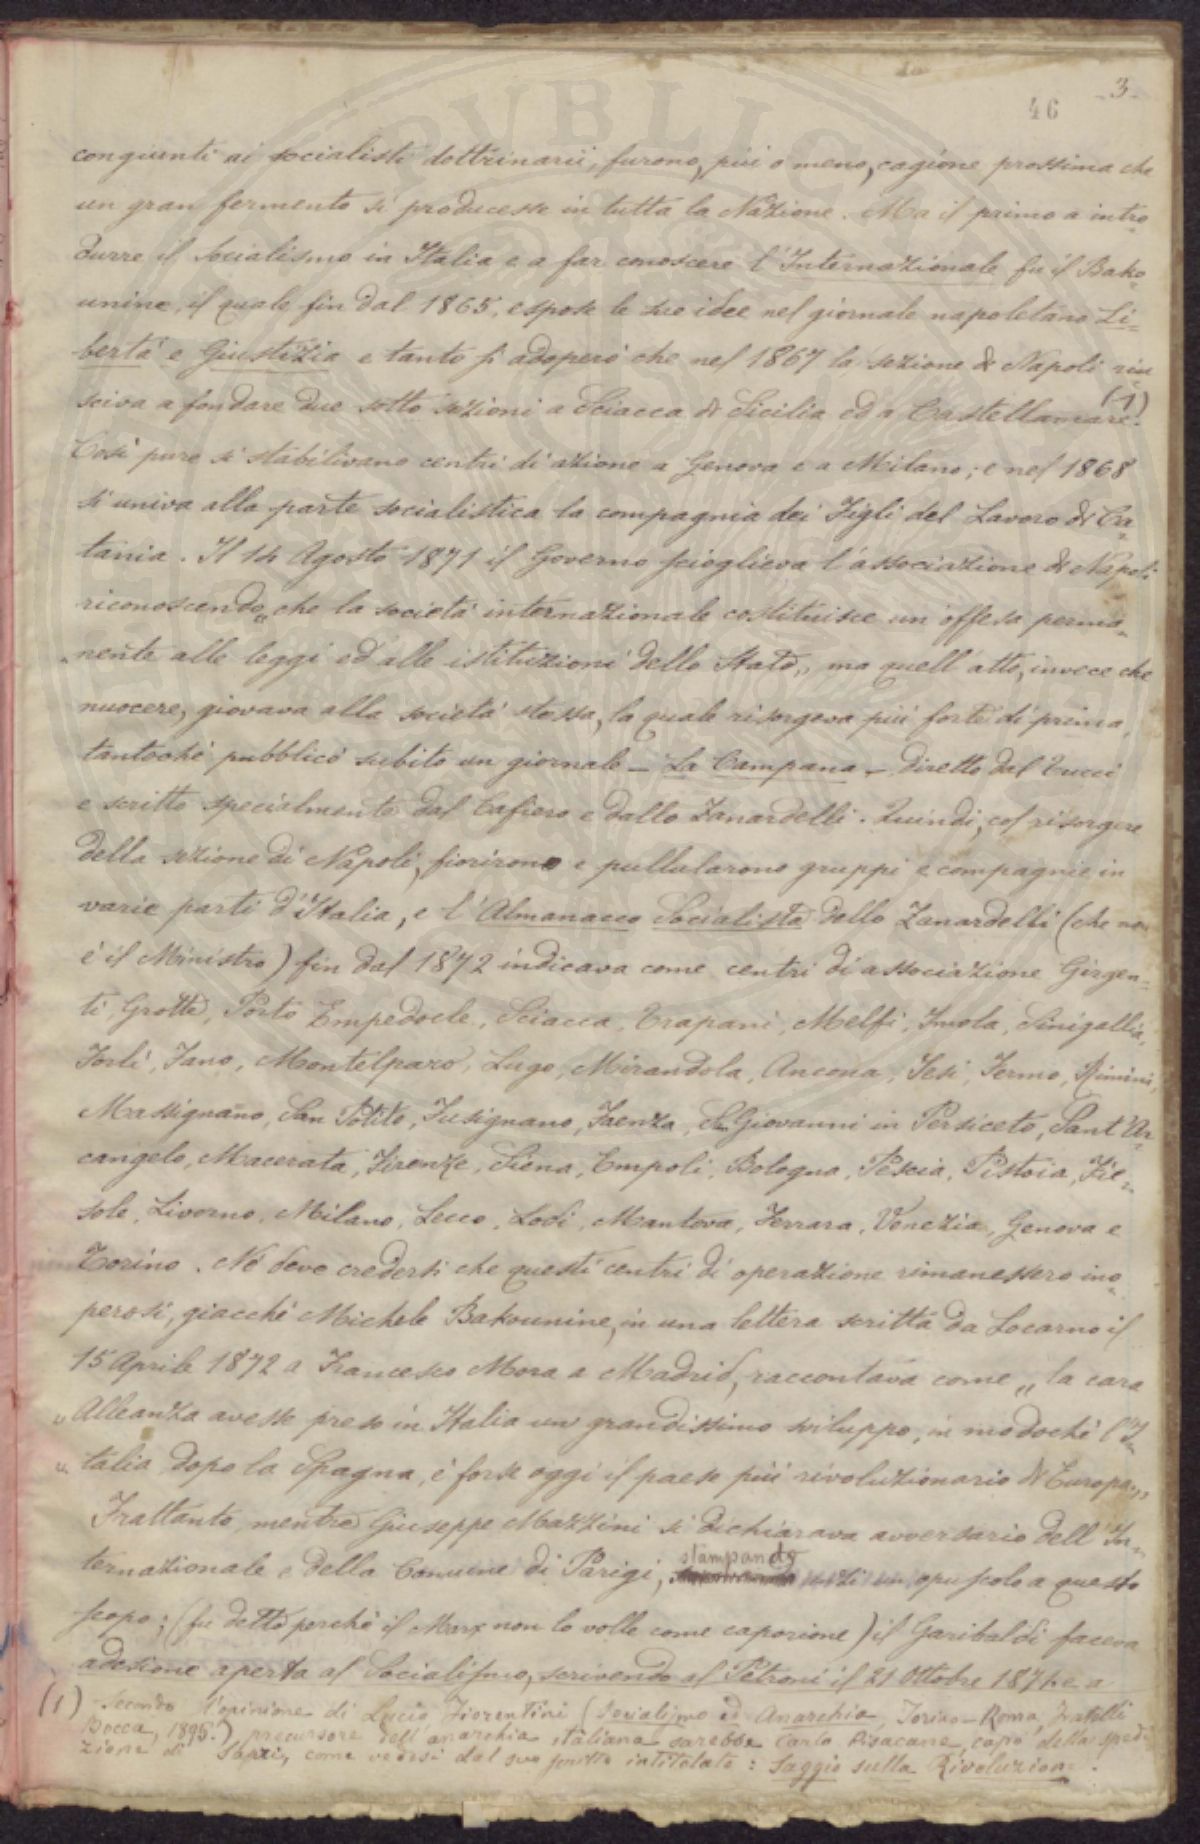 3.
46
congiunti ai socialisti dottrinarii, furono, più o meno, cagione prossima che
un gran fermento si producesse in tutta la Nazione. Ma il primo a intro-
durre il Socialismo in Italia e a far conoscere l'Internazionale fu il Bako-
unine, il quale fin dal 1865, espose le sue idee nel giornale napoletano Li-
bertà e Giustizia e tanto si adoperò che nel 1867 la sezione di Napoli riu-
sciva a fondare due sotto sezioni a Sciacca di Sicilia ed a Castellamare. (1)
Così pure si stabilivano centri di azione a Genova e a Milano; e nel 1868
si univa alla parte socialistica la compagnia dei Figli del Lavoro di Ca-
tania. Il 14 Agosto 1871 il Governo scioglieva l'associazione di Napoli
riconoscendo „ che la società internazionale costituisce un'offesa perma-
„ nente alle leggi ed alle istituzioni dello Stato „ ma quell'atto, invece che
nuocere, giovava alla società stessa, la quale risorgeva più forte di prima,
tantochè pubblicò subito un giornale – La Campana – diretto dal Tucci
e scritto specialmente dal Cafiero e dallo Zanardelli. Quindi, col risorgere
della sezione di Napoli, fiorirono e pullularono gruppi e compagnie in
varie parti d'Italia, e l'Almanacco Socialista dello Zanardelli (che non
è il Ministro) fin dal 1872 indicava come centri di associazione Girgen-
ti, Grotte, Porto Empedocle, Sciacca, Trapani, Melfi, Imola, Sinigallia,
Forlì, Fano, Montelparo, Lugo, Mirandola, Ancona, Jesi, Fermo, Rimini,
Massignano, San Potito, Fusignano, Faenza, S. Giovanni in Persiceto, Sant'Ar-
cangelo, Macerata, Firenze, Siena, Empoli, Bologna, Pescia, Pistoia, Fie-
sole, Livorno, Milano, Lecco, Lodi, Mantova, Ferrara, Venezia, Genova e
Torino. Nè deve credersi che questi centri di operazione rimanessero ino-
perosi, giacchè Michele Bakounine, in una lettera scritta da Locarno il
15 Aprile 1872 a Francesco Mora a Madrid, raccontava come „ la cara
„ Alleanza avesse preso in Italia un grandissimo sviluppo, in modochè l'I-
„ talia dopo la Spagna, è forse oggi il paese più rivoluzionario di Europa „
Frattanto mentre Giuseppe Mazzini si dichiarava avversario dell'In-
ternazionale e della Comune di Parigi, stampando anzi un opuscolo a questo
scopo; (fu detto perchè il Marx non lo volle come caporione) il Garibaldi faceva
adesione aperta al Socialismo, scrivendo al Petroni il 21 Ottobre 1871 e a
(1) Secondo l'opinione di Lucio Fiorentini (Socialismo ed Anarchia, Torino-Roma, Fratelli
Bocca, 1895.) precursore dell'anarchia italiana sarebbe Carlo Pisacane, capo della spedi-
zione di Sapri, come vedesi dal suo scritto intitolato: Saggio sulla Rivoluzione.